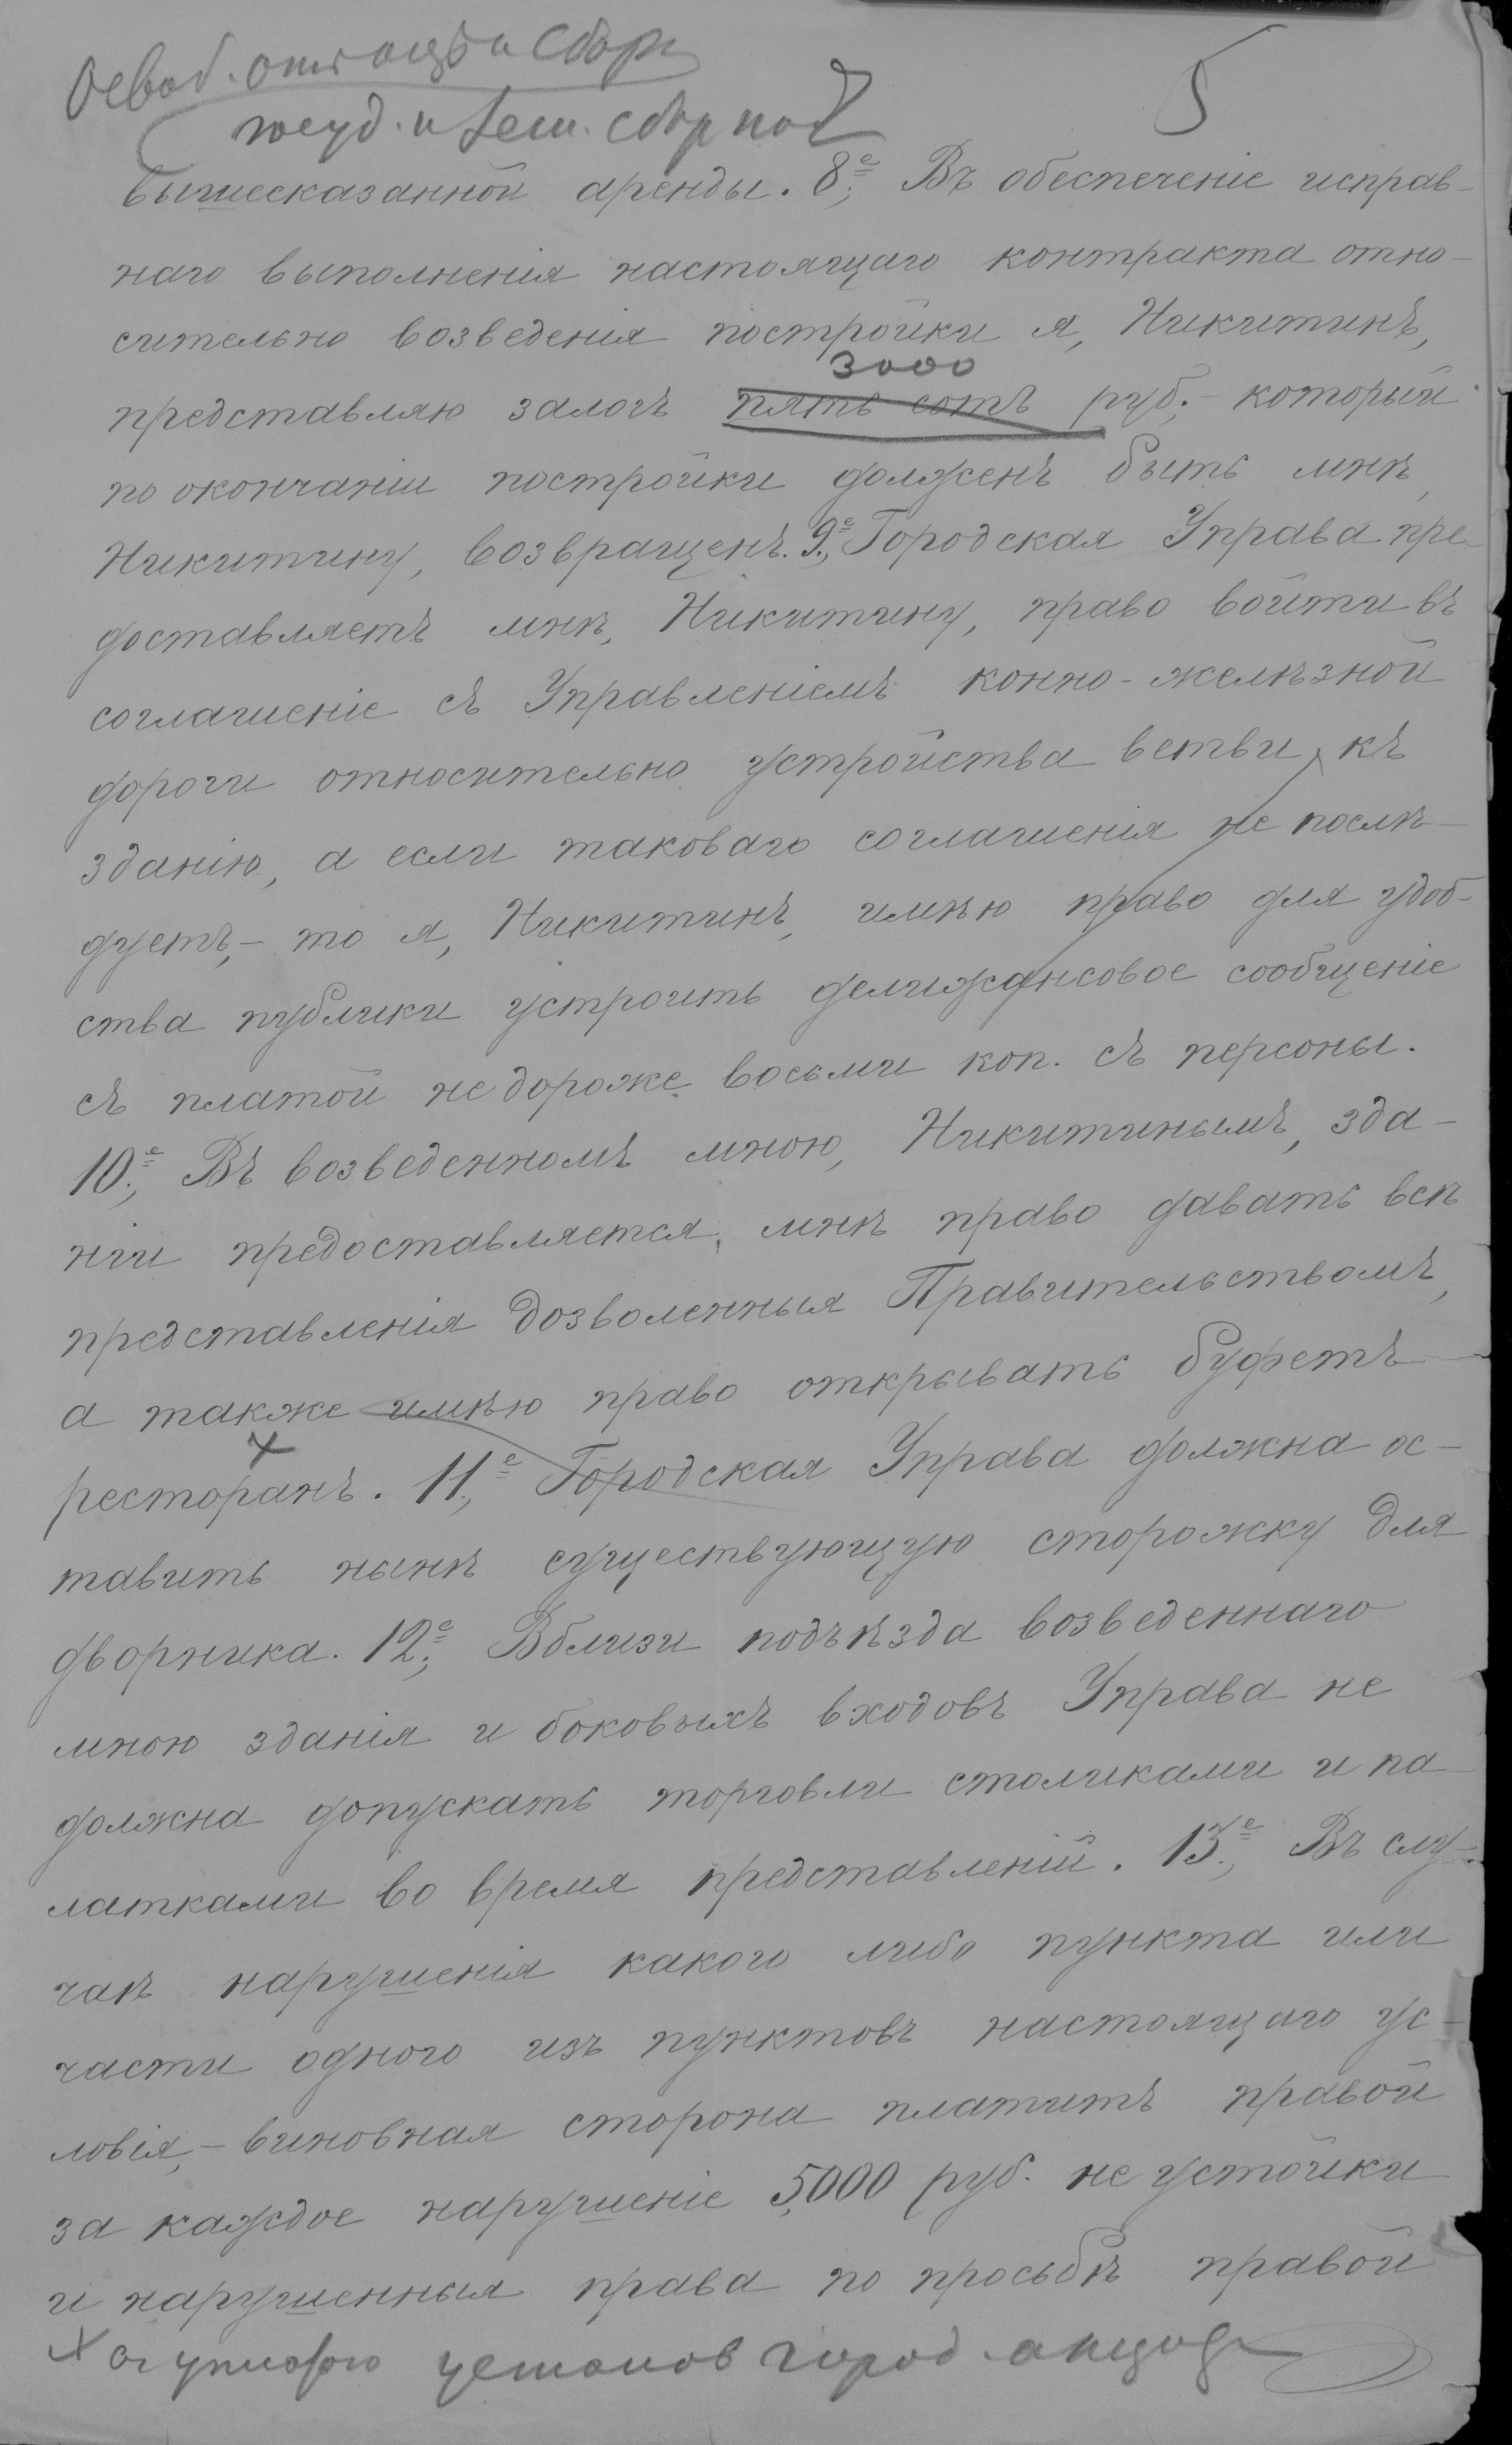 Освоб. отъ оцѣн. сбора
госуд. и зем. сбор. под
5
вышесказанной аренды. 8.е, Въ обеспеченіе исправ-
наго выполненія настоящаго контракта отно-
сительно возведенія постройки я, Никитинъ,
3000
представляю залогъ пять сотъ руб.,- который
по окончаніи постройки долженъ быть мнѣ,
Никитину, возвращенъ. 9.е, Городская Управа пре-
доставляетъ мнѣ, Никитину, право войти въ
соглашеніе съ Управленіемъ конно-желѣзной
дороги относительно устройства ветви къ
зданію, а если таковаго соглашенія не послѣ-
дуетъ,- то я, Никитинъ, имѣю право для удоб-
ства публики устроить делижансовое сообщеніе
съ платой не дороже восьми коп. съ персоны.
10.е, Въ возведенномъ мною, Никитинымъ, зда-
ніи предоставляется, мнѣ право давать всѣ
представленія дозволенныя Правительствомъ,
а также имѣю право открывать буфетъ-
ресторанъ. 11.е, Городская Управа должна ос-
тавить нынѣ существующую сторожку для
дворника. 12.е, Вблизи подъѣзда возведеннаго
мною зданія и боковыхъ входовъ Управа не
должна допускать торговли столиками и па-
латками во время представленій. 13.е, Въ слу-
чаѣ нарушенія какого либо пункта или
части одного изъ пунктовъ настоящаго ус-
ловія,- виновная сторона платитъ правой
за каждое нарушеніе 5,000 руб. не устойки
и нарушенныя права по просьбѣ правой
х съ уплатою установ город. акциза